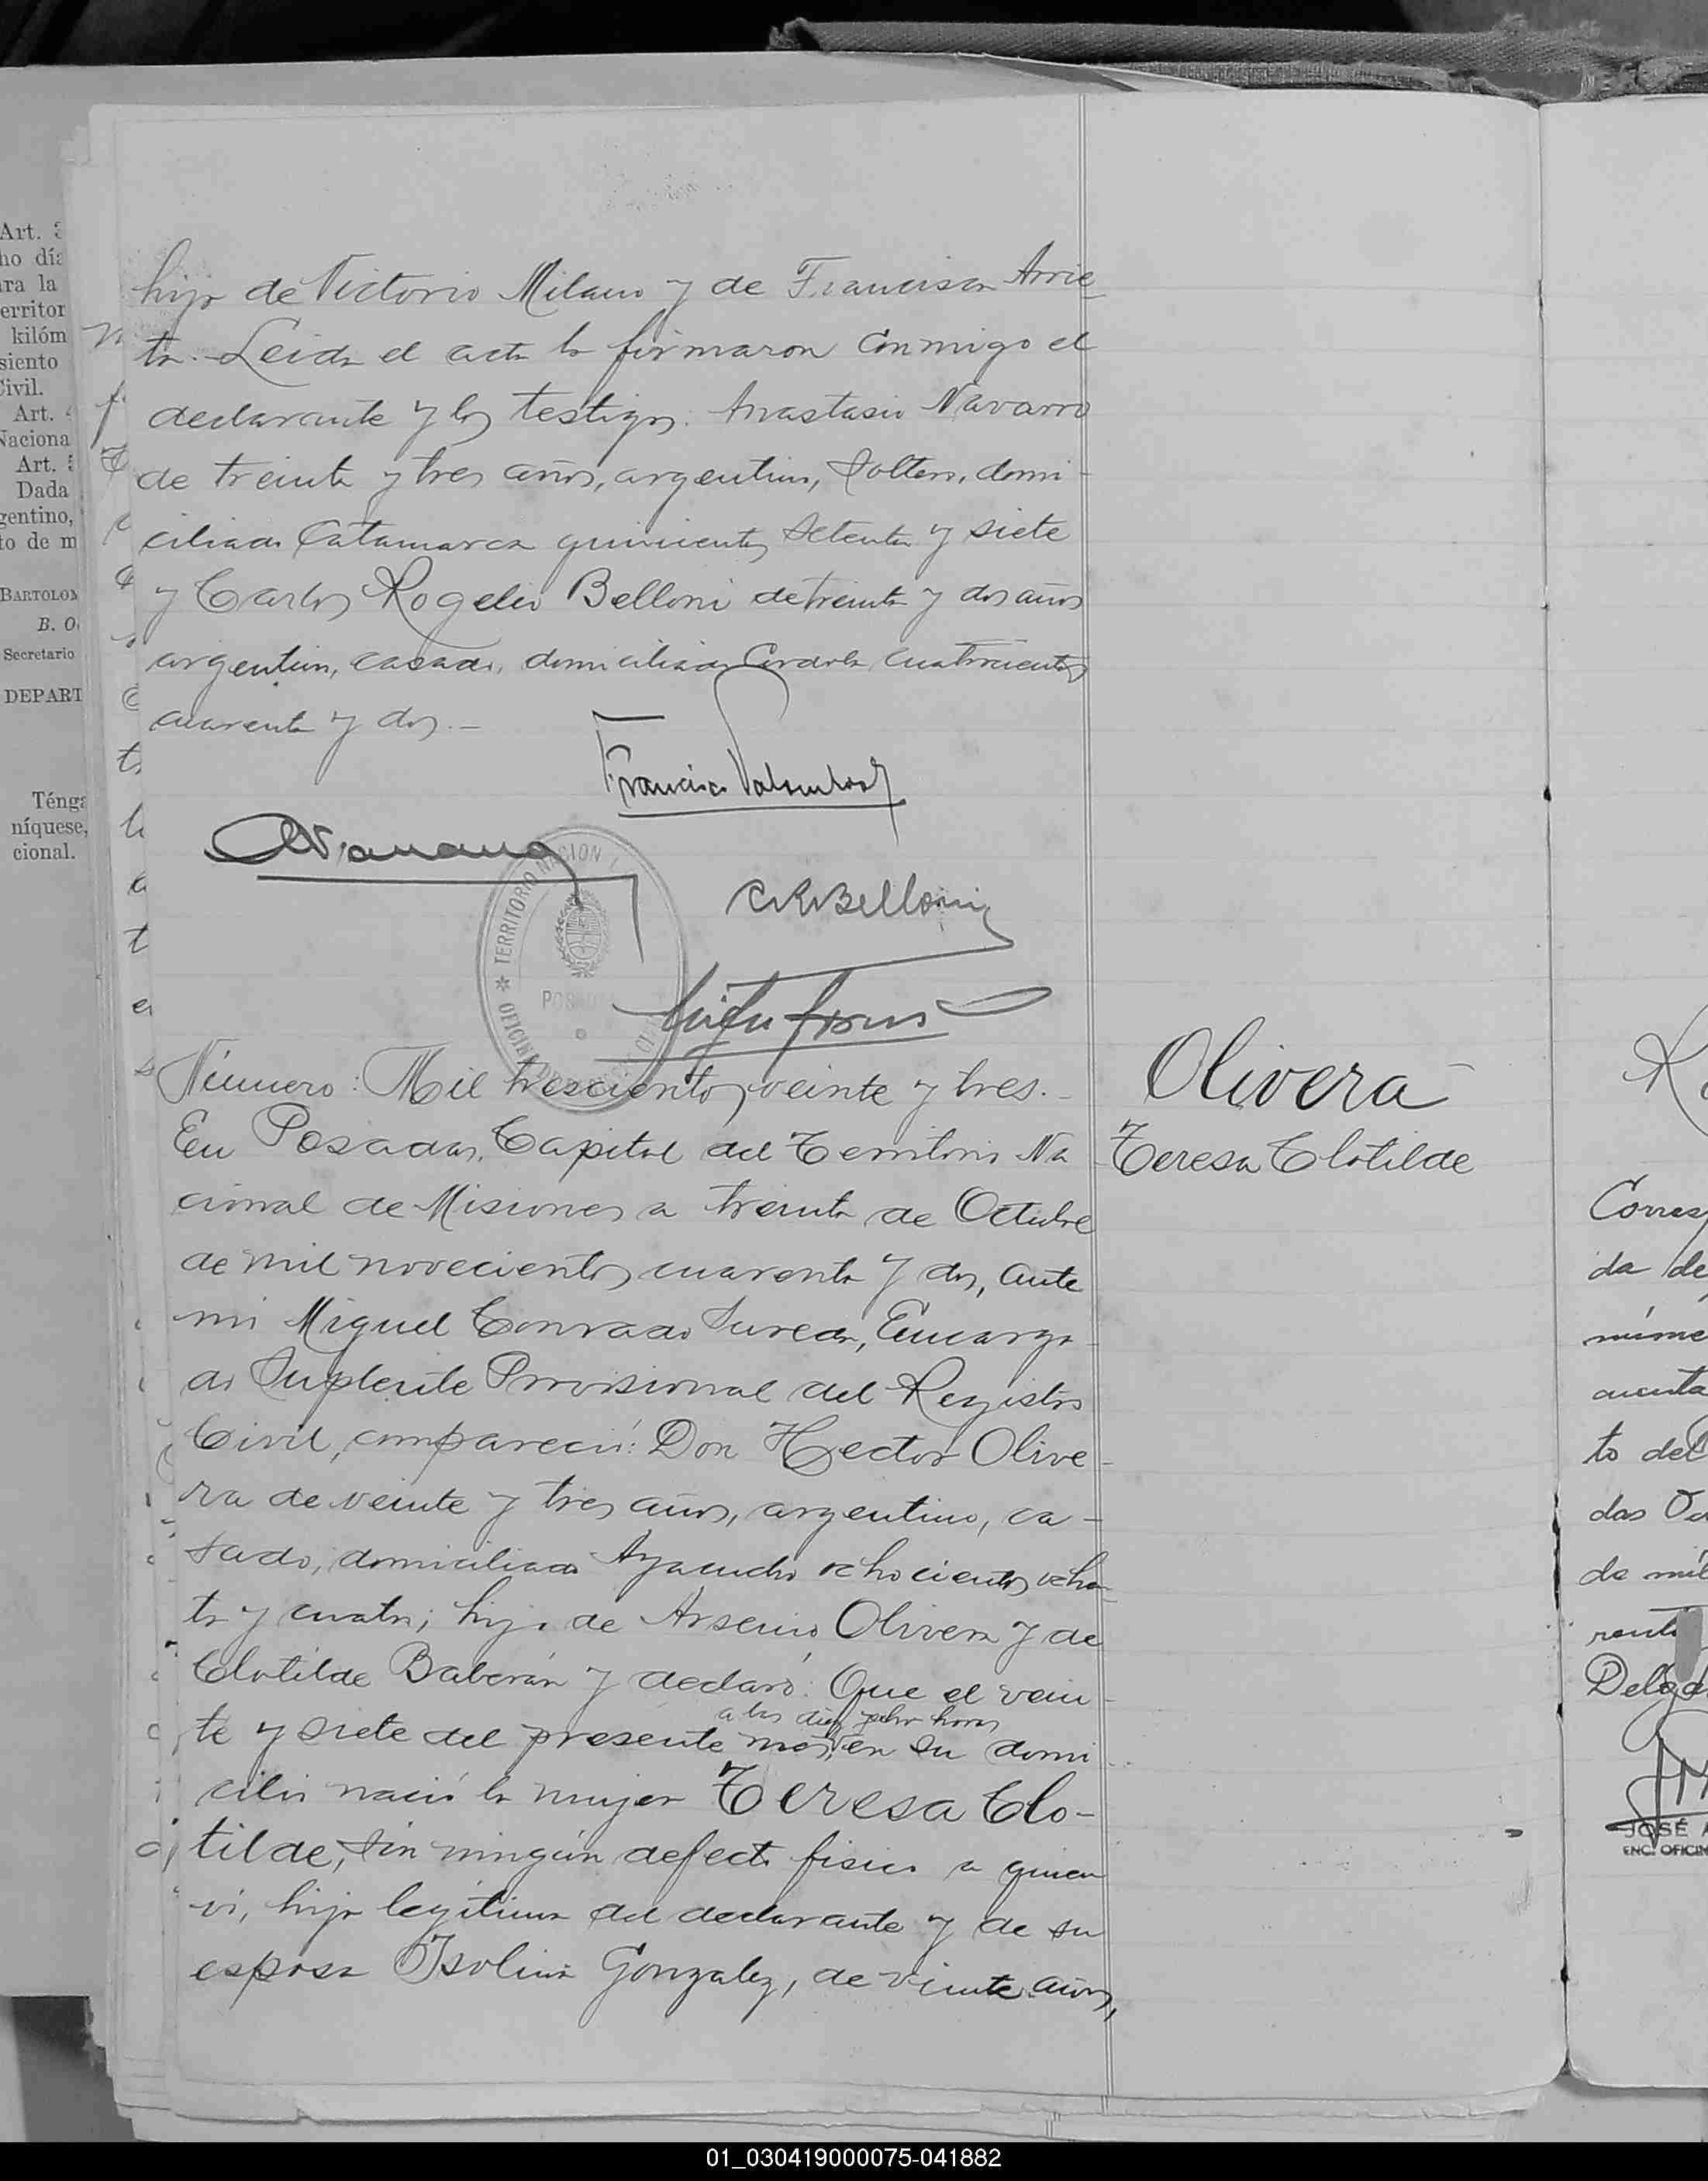 hija de Victorio Milano y de Francisca Arrie-
ta.- Leida el acta la firmaron conmigo el
declarante y los testigos: Anastasio Navarro
de treinta y tres años, argentino, soltero, domi-
ciliado Catamarca quinientos setenta y siete
y Carlos Rogelio Belloni de treinta y dos años
argentino, casado, domiciliado Cordoba cuatrocientos
cuarenta y dos.-
Francisco
CRBelloni
TERRITORIO NACION
POSADAS
OFICINA
Número: Mil trescientos veinte y tres.-
En Posadas, Capital del Territorio Na
cional de Misiones a treinta de Octubre
de mil novecientos cuarenta y dos, ante
mi Miguel Conrado Sureda, Encarga-
do Suplente Provisional del Registro
Civil, compareció: Don Hector Olive-
ra de veinte y tres años, argentino, ca-
sado, domiciliado Ayacucho ochocientos ochen
ta y cuatro; hijo de Arsenio Olivera y de
Clotilde Baberán y declaró: Que el vein-
a las diez y ocho horas
te y siete del presente mes, en su domi
cilio nació la mujer Teresa Clo-
tilde, sin ningún defecto fisico a quien
vi, hija legitima del declarante y de su
esposa Isolina Gonzalez, de veinte años,
Olivera
Teresa Clotilde
Art. 3
ho día
ara la
erritor
kilóm
siento
Civil.
Art. 4
Naciona
Art. 5
Dada
gentino,
to de m
BARTOLOM
B. O
Secretario
DEPART
Ténga
níquese,
cional.
Corres
da de
núme
cuenta
to del
das
de mil
Delga
JOSÉ A
ENC. OFICIN
01_030419000075-041882